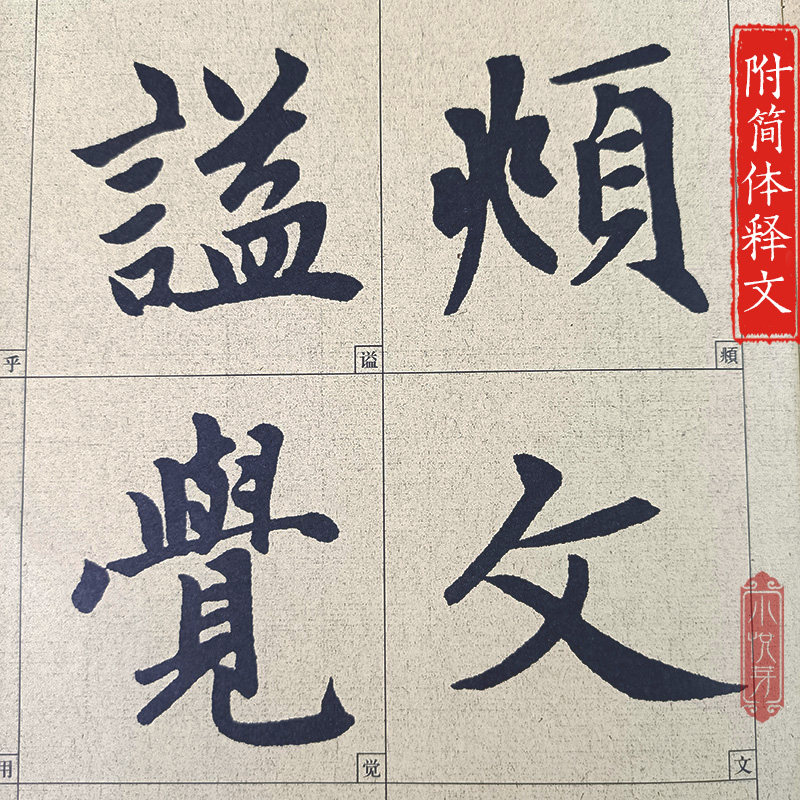 附简体释文
頫
頫
文
文
謚
谥
覺
觉
乎
用